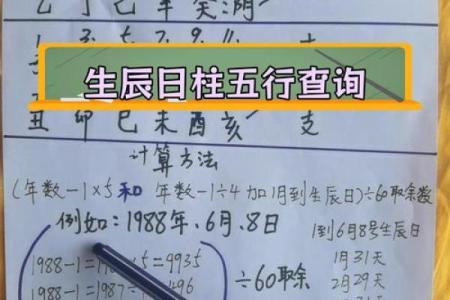 乙 丁 己 辛 癸 阴
1. 3. 5. 7. 9. 11.
生辰日柱五行查询
丑 卯 巳 未 酉 亥 支
计算方法
(年数-1×5和 年数-1÷4 加1月到生辰日)÷60取余数
例如:1988年、6月、8日
1到6月8号生辰日
1月31天
1988-1= ×5=9935
÷60取余
2月29天
1988-1=1987÷ 496